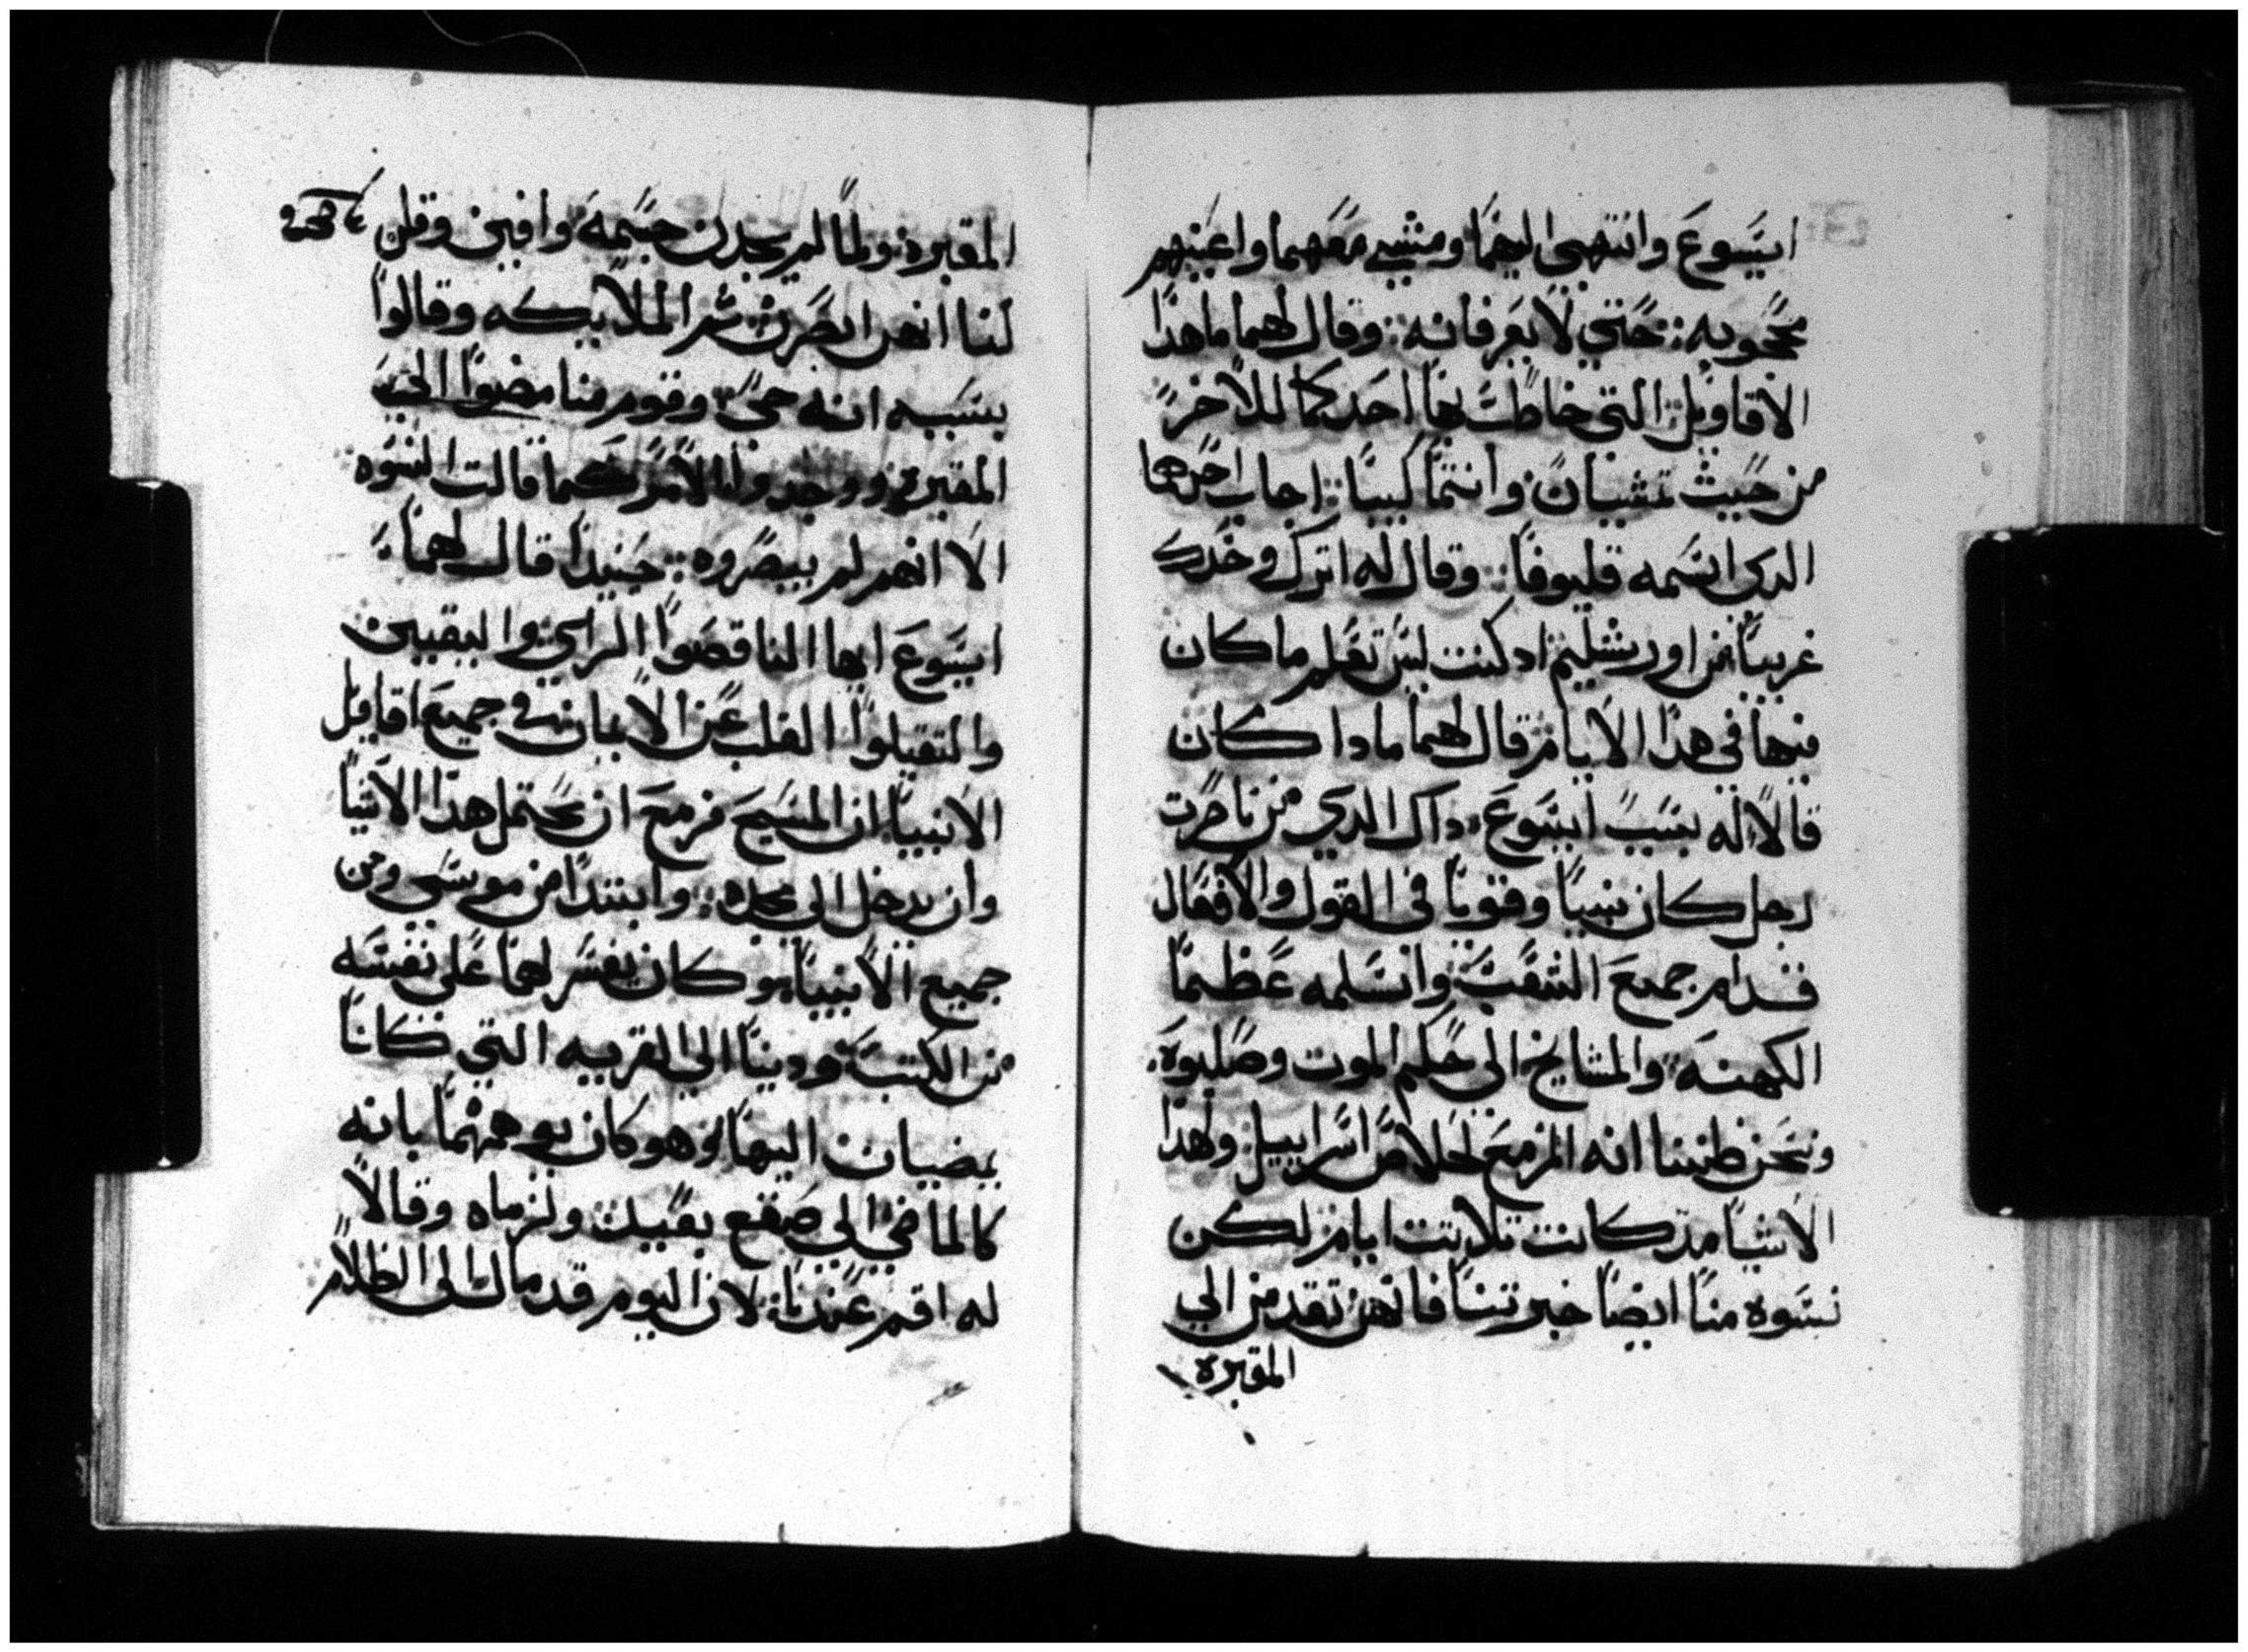 ايسوع وانتهى اليهما ومشى معهما واعينهم
محجوبه: حتي لا يعرفانه: وقال لهما ما هدا
الاقاويل التي خاطب بها احدكما للاخر
من حيث تمشيان وانتما كيبا: اجاب احدهما
الدى اسمه قليوفا: وقال له اترك وحدك
غريبا من اورشليم ادكنت ليس تعلم ما كان
فيها في هدا الايام قال لهما مادا كان
قالا له بسبب ايسوع داك الدي من ناصرت
رجل كان نبيا وقويا في القول والافعال
قدام جميع الشعب وانسلمه عظما
الكهنه والمشايخ الى حكم الموت وصلبوه.
ونحن ظننا انه المزمع لخلاص اسراييل ولهدا
الاشيا مد كانت تلاتت ايام لكن
نسوه منا ايضا خبرتنا فانهن تقدمن الي
المقبره
المقبره ولما لم يجدن جسمه وافين وقلن
لنا انهن ابصرن تم الملايكه وقالوا
بسببه انه حي وقوم منا مضوا الى
المقبره ووجدوا الامر كما قالت النسوه
الا انهم لم يبصروه: حينيدا قال لهما:
ايسوع ايها الناقصوا الراي واليقين
والتقيلوا القلب عن الايمان في جميع اقايل
الانبيا ان المسيح مزمع ان يحتمل هدا الاشيا
وان يدخل الى مجده: وابتدا من موسى ومن
جميع الانبيا وكان يفسر لهما على نفسه
من الكتب ودينا الى القريه التي كانا
يمضيان اليها وهو كان يوهمهما بانه
كالماضي الي صقع بعيد ولزماه وقالا
له اقم عندنا لان اليوم قد مال الى الظلام